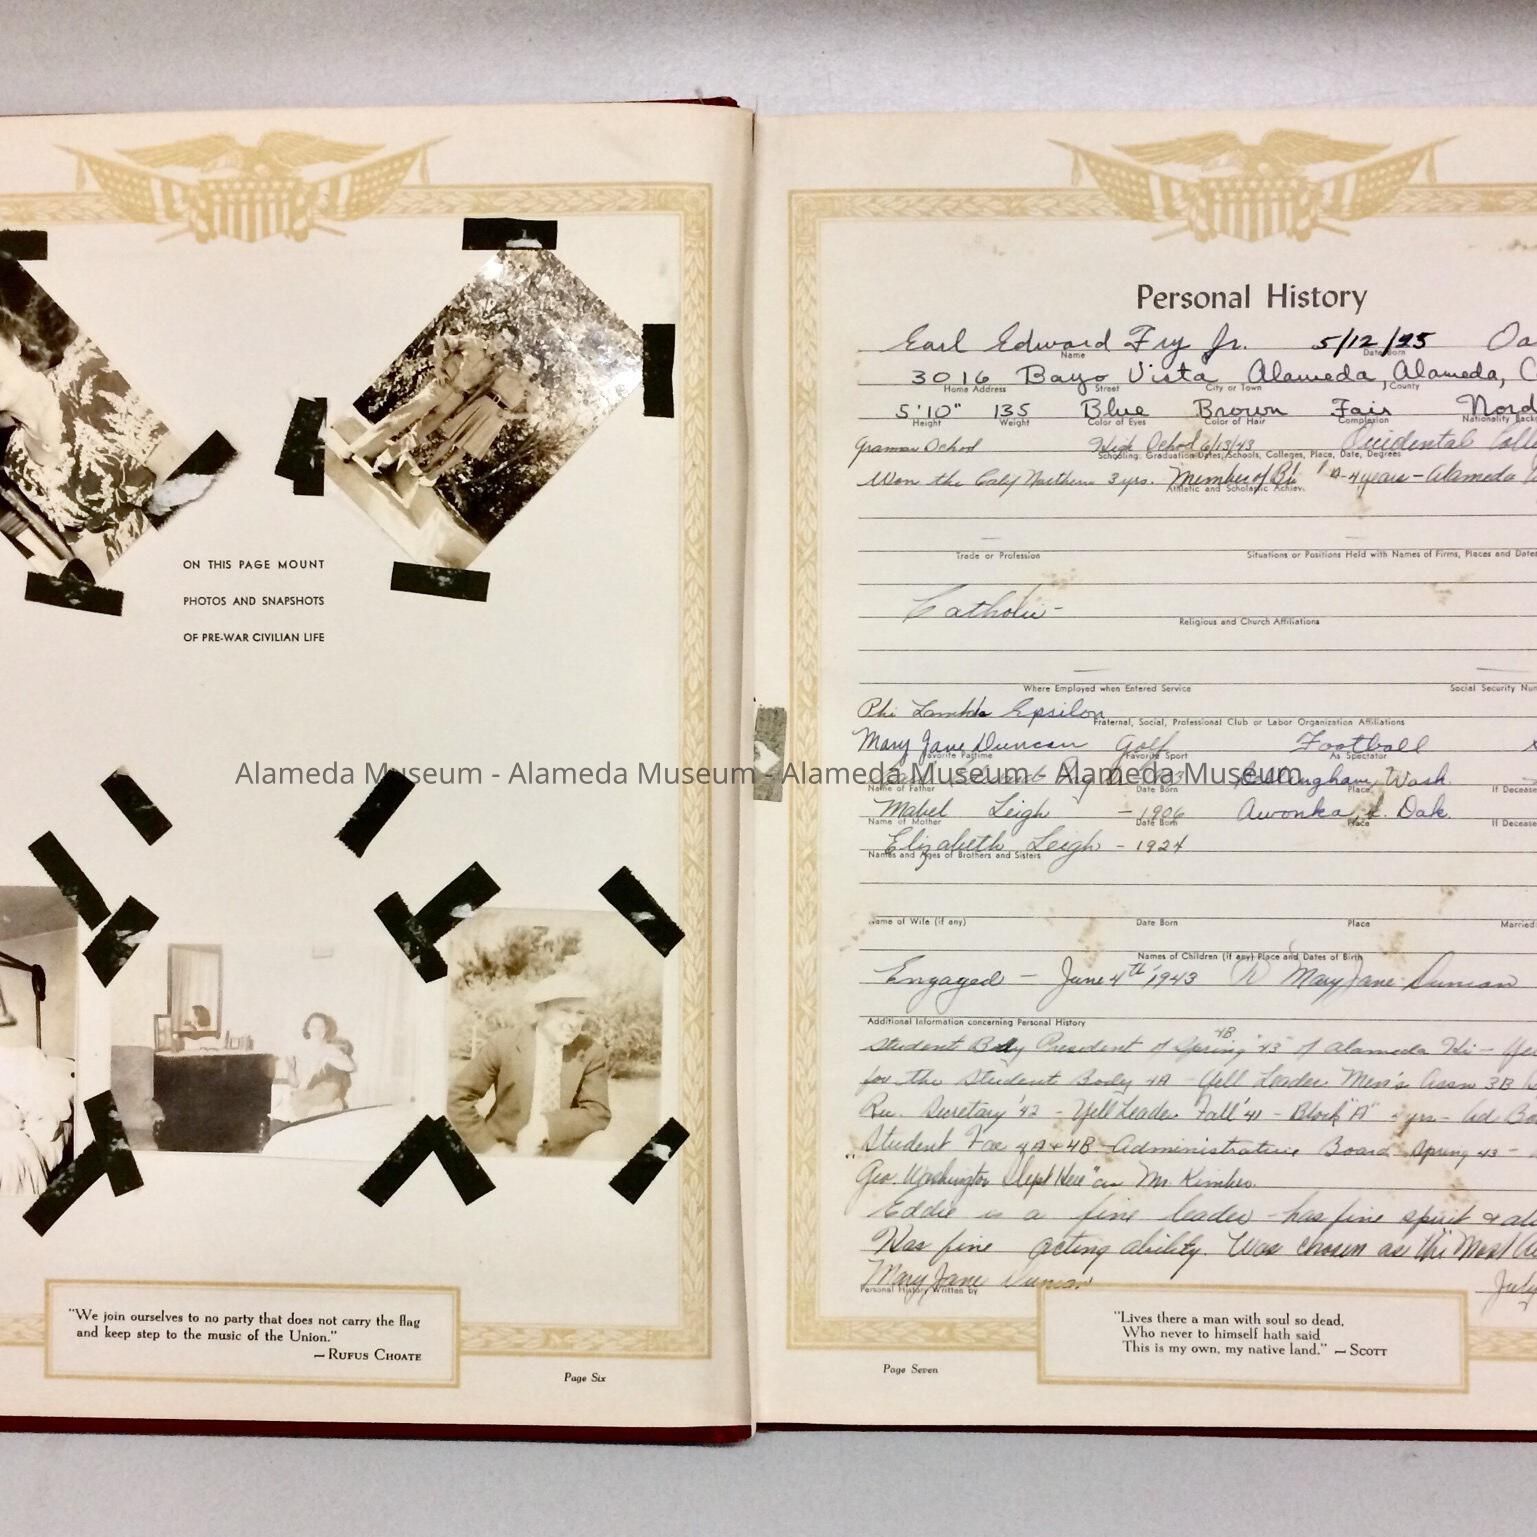 ON THIS PAGE MOUNT
PHOTOS AND SNAPSHOTS
OF PRE-WAR CIVILIAN LIFE
"We join ourselves to no party that does not carry the flag
and keep step to the music of the Union."
— RUFUS CHOATE
Page Six
Personal History
Earl Edward Fry Jr. 5/12/25 Oa
Name Date Born
3016 Bayo Vista Alameda, Alameda, C
Home Address Street City or Town County
5'10" 135 Blue Brown Fair Nord
Height Weight Color of Eyes Color of Hair Complexion Nationality Back
Grammar School High School 6/13/43 Occidental Colle
Schooling: Graduation Dates, Schools, Colleges, Place, Date, Degrees
Won the Calif Northern 3 yrs. Member of Bl - 4 years - Alameda
Athletic and Scholastic Achiev
Trade or Profession Situations or Positions Held with Names of Firms, Places and Dates
Catholic -
Religious and Church Affiliations
Where Employed when Entered Service Social Security Num
Phi Lambda Epsilon
Fraternal, Social, Professional Club or Labor Organization Affiliations
Mary Jane Duncan Golf Football
Favorite Pastime Favorite Sport As Spectator
Alameda Museum - Alameda Museum - Alameda Museum - Alameda Museum
Edward Bellingham, Wash.
Name of Father Date Born Place If Decease
Mabel Leigh - 1906 Awonka, S. Dak.
Name of Mother Date Born Place If Decease
Elizabeth Leigh - 1924
Names and Ages of Brothers and Sisters
Name of Wife (if any) Date Born Place Married
Names of Children (if any) Place and Dates of Birth
Engaged - June 4th 1943 to Mary Jane Duncan
Additional Information concerning Personal History
Student Body President of Spring '43 4B of Alameda Hi - Yel
for the Student Body 4A - Yell Leader Men's Assn 3B
Rec. Secretary '42 - Yell Leader Fall '41 - Block "A" 4 yrs - Ad Bo
Student 4A & 4B - Administrative Board Spring 43 -
"Geo. Washington Slept Here" as Mr. Kimber.
Eddie is a fine leader - has fine spirit &
Has fine acting ability. Was chosen as the Most
Mary Jane Duncan July
Personal History Written by
"Lives there a man with soul so dead,
Who never to himself hath said
This is my own, my native land." — SCOTT
Page Seven